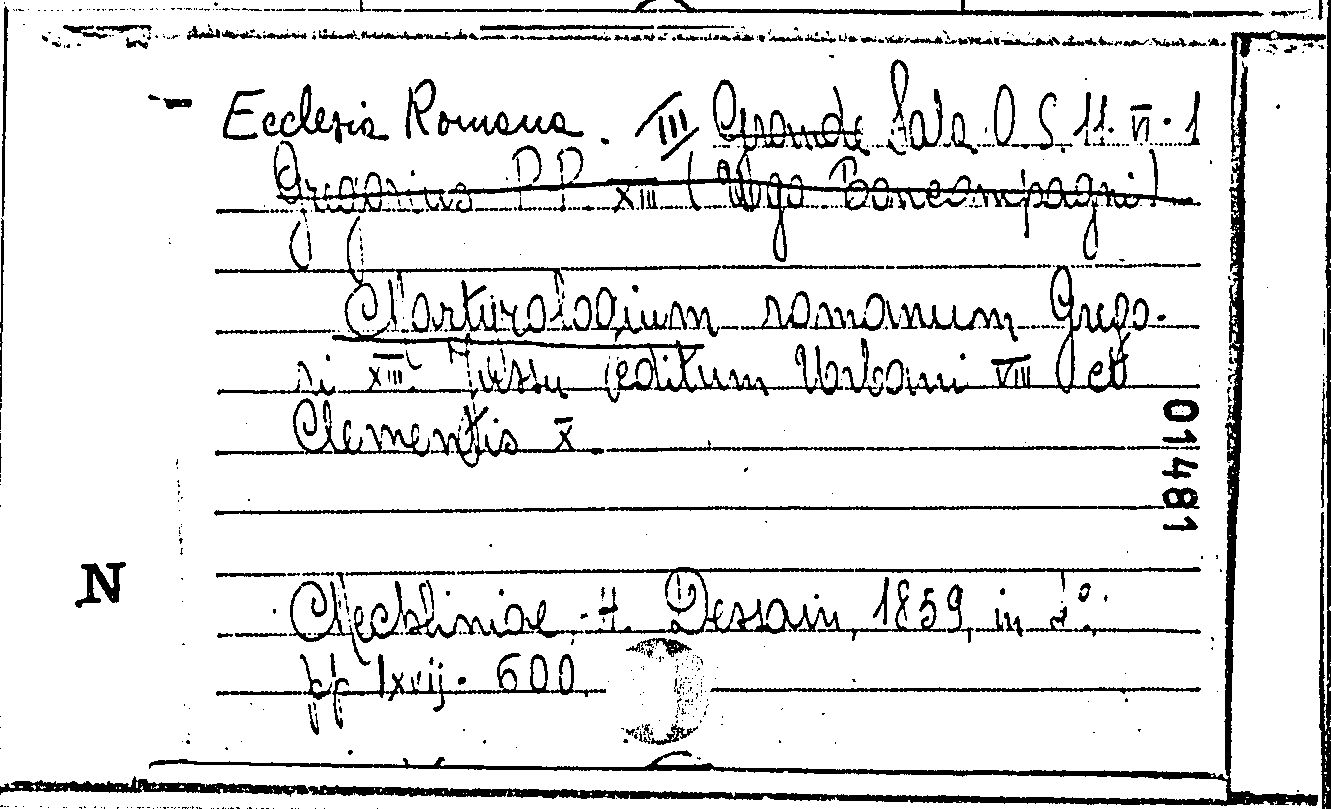 Ecclesia Romana. III Grande Sala O S. 11. VI. 1
Gregorius P.P. XIII (Ugo Boncompagni)
Martyrologium romanum Grego-
ri XIII. Jussu editum Urbani VIII et
Clementis X.
01481
N
Mechliniae. H. Dessain, 1859, in
pp lxvij. 600